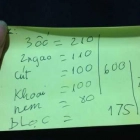 300 = 210
2ngao = 110
cút = 100
Khoai = 100
nem = 80
BLạc = 
600
175